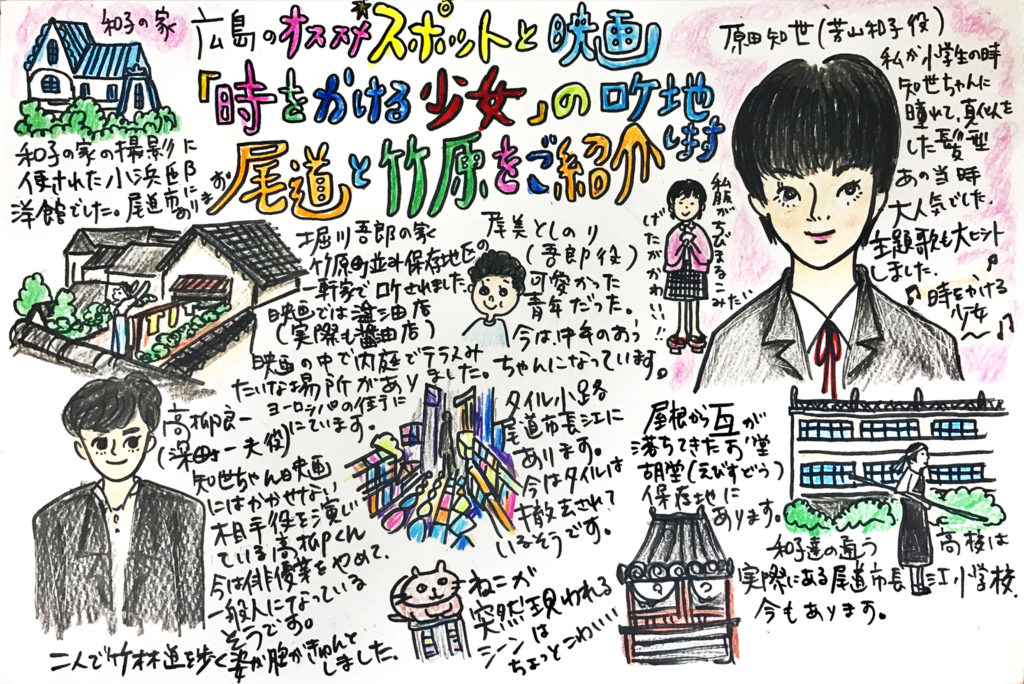 広島のオススメスポットと映画
「時をかける少女」のロケ地
尾道と竹原をご紹介します
和子の家
和子の家の撮影に
使された小浜邸
洋館でした。尾道市に
あります
原田知世(芳山和子役)
私が小学生の時
知世ちゃんに
憧れて、真似を
した髪型
あの当時
大人気でした。
主題歌も大ヒット
しました。
♪時をかける
少女〜♪
私服がちびまるこみたい
げたがかわいい!!
堀川吾郎の家
竹原町並み保存地区の
一軒家でロケされました。
映画では醤油店
(実際も醤油店)
尾美としのり
(吾郎役)
可愛かった
青年だった。
今は中年のおっ
ちゃんになっています。
映画の中で内庭でテラスみ
たいな場所がありました。
ヨーロッパの住宅に
にています。
高柳良一
(深町一夫役)
知世ちゃん映画
にはかかせない、
相手役を演じ
ている高柳くん
今は俳優業をやめて、
一般人になっている
そうです。
二人で竹林道を歩く姿が胸がきゅんと
しました。
タイル小路
尾道市長江に
あります。
今はタイルは
撤去されて
いるそうです。
ねこが
突然現われる
シーンは
ちょっとこわい
屋根から瓦が
落ちてきたお堂
胡堂(えびすどう)
保存地に
あります。
和子達の通う高校は
実際にある尾道市長江小学校
今もあります。